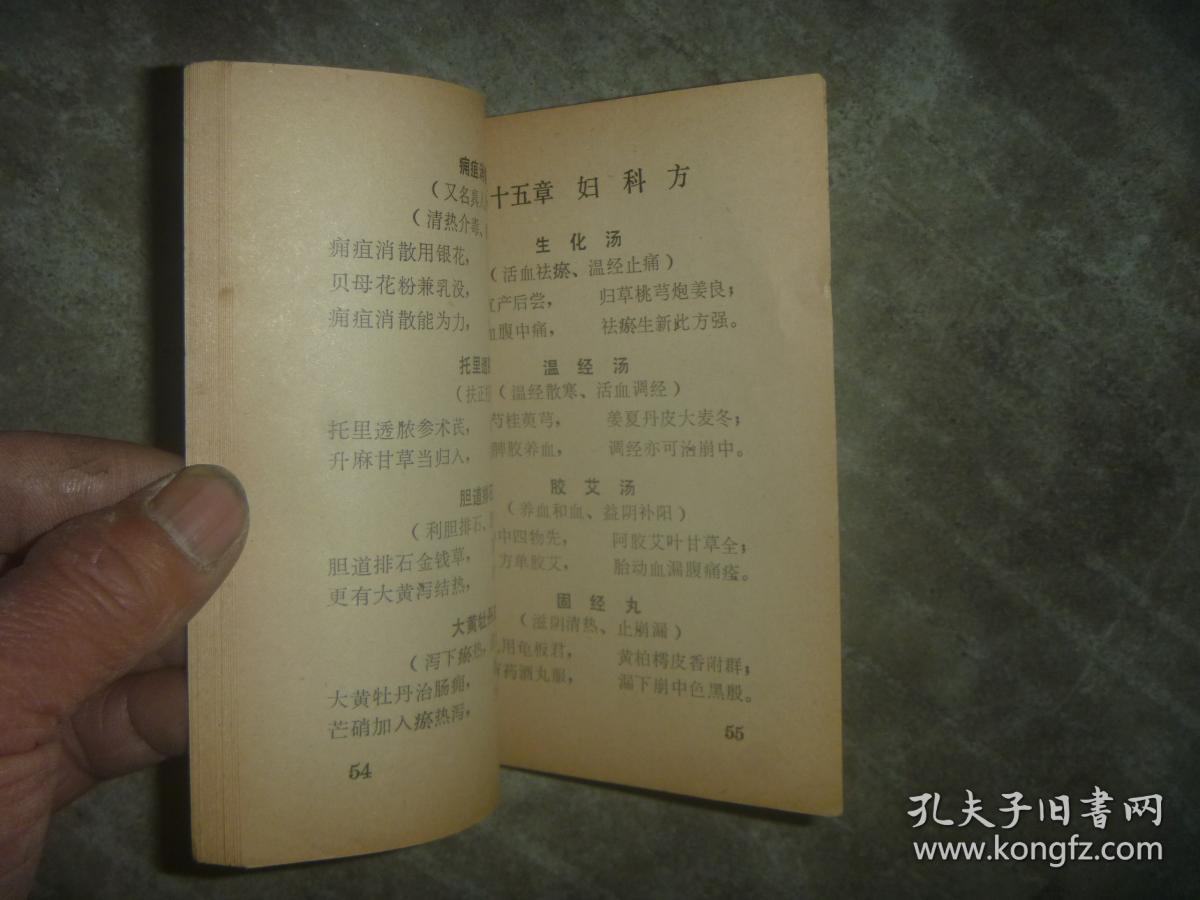 痈疽消
（又名真人
（清热介毒、
痈疽消散用银花，
贝母花粉兼乳没，
痈疽消散能为力，
托里透
（扶正
托里透脓参术芪，
升麻甘草当归入，
胆道排石
（利胆排石、
胆道排石金钱草，
更有大黄泻结热，
大黄牡丹
（泻下瘀热，
大黄牡丹治肠痈，
芒硝加入瘀热泻，
54
十五章 妇科方
生化汤
（活血祛瘀、温经止痛）
产后尝， 归草桃芎炮姜良；
腹中痛， 祛瘀生新此方强。
温经汤
（温经散寒、活血调经）
芍桂萸芎， 姜夏丹皮大麦冬；
脾胶养血， 调经亦可治崩中。
胶艾汤
（养血和血、益阴补阳）
中四物先， 阿胶艾叶甘草全；
方单胶艾， 胎动血漏腹痛痊。
固经丸
（滋阴清热、止崩漏）
用龟板君， 黄柏樗皮香附群；
药酒丸服， 漏下崩中色黑殷。
55
孔夫子旧书网
www.kongfz.com